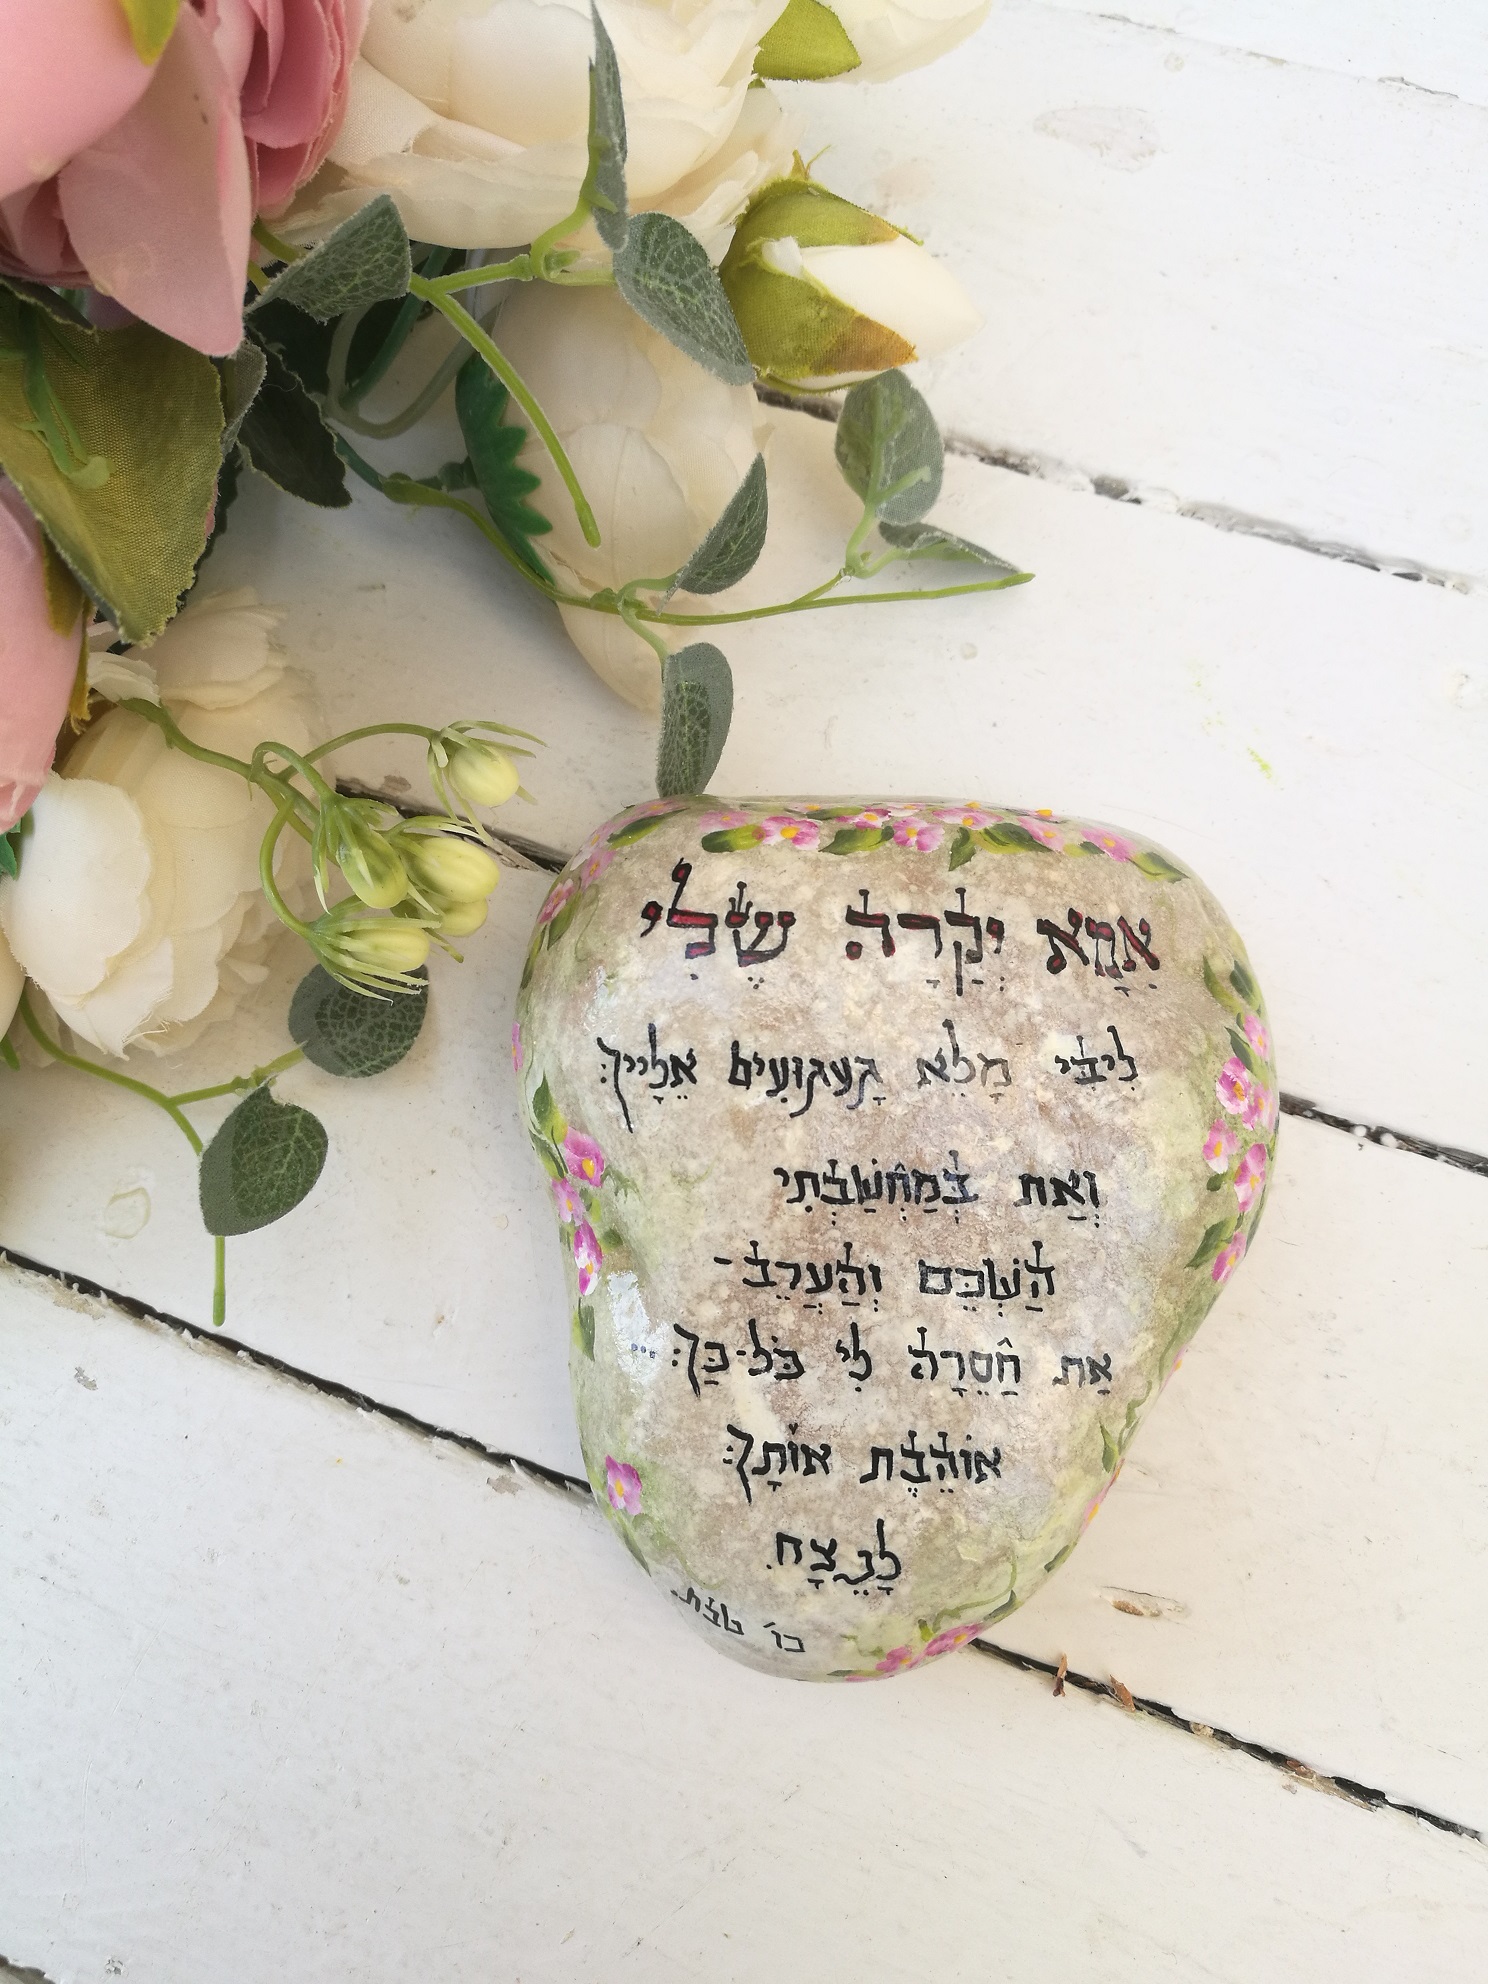 אִמָּא יְקָרָה שֶׁלִּי
לִיבִּי מָלֵא גַּעְגּוּעִים אֵלָיִיךְ:
וְאַת בְּמַחְשַׁבְתִּי
הַשְׁכֵּם וְהַעֲרֵב-
אַת חֲסֵרָה לִי כָּל-כַּךְ...
אוֹהֶבֶת אוֹתָךְ
לָנֶצַח.
כו' טבת